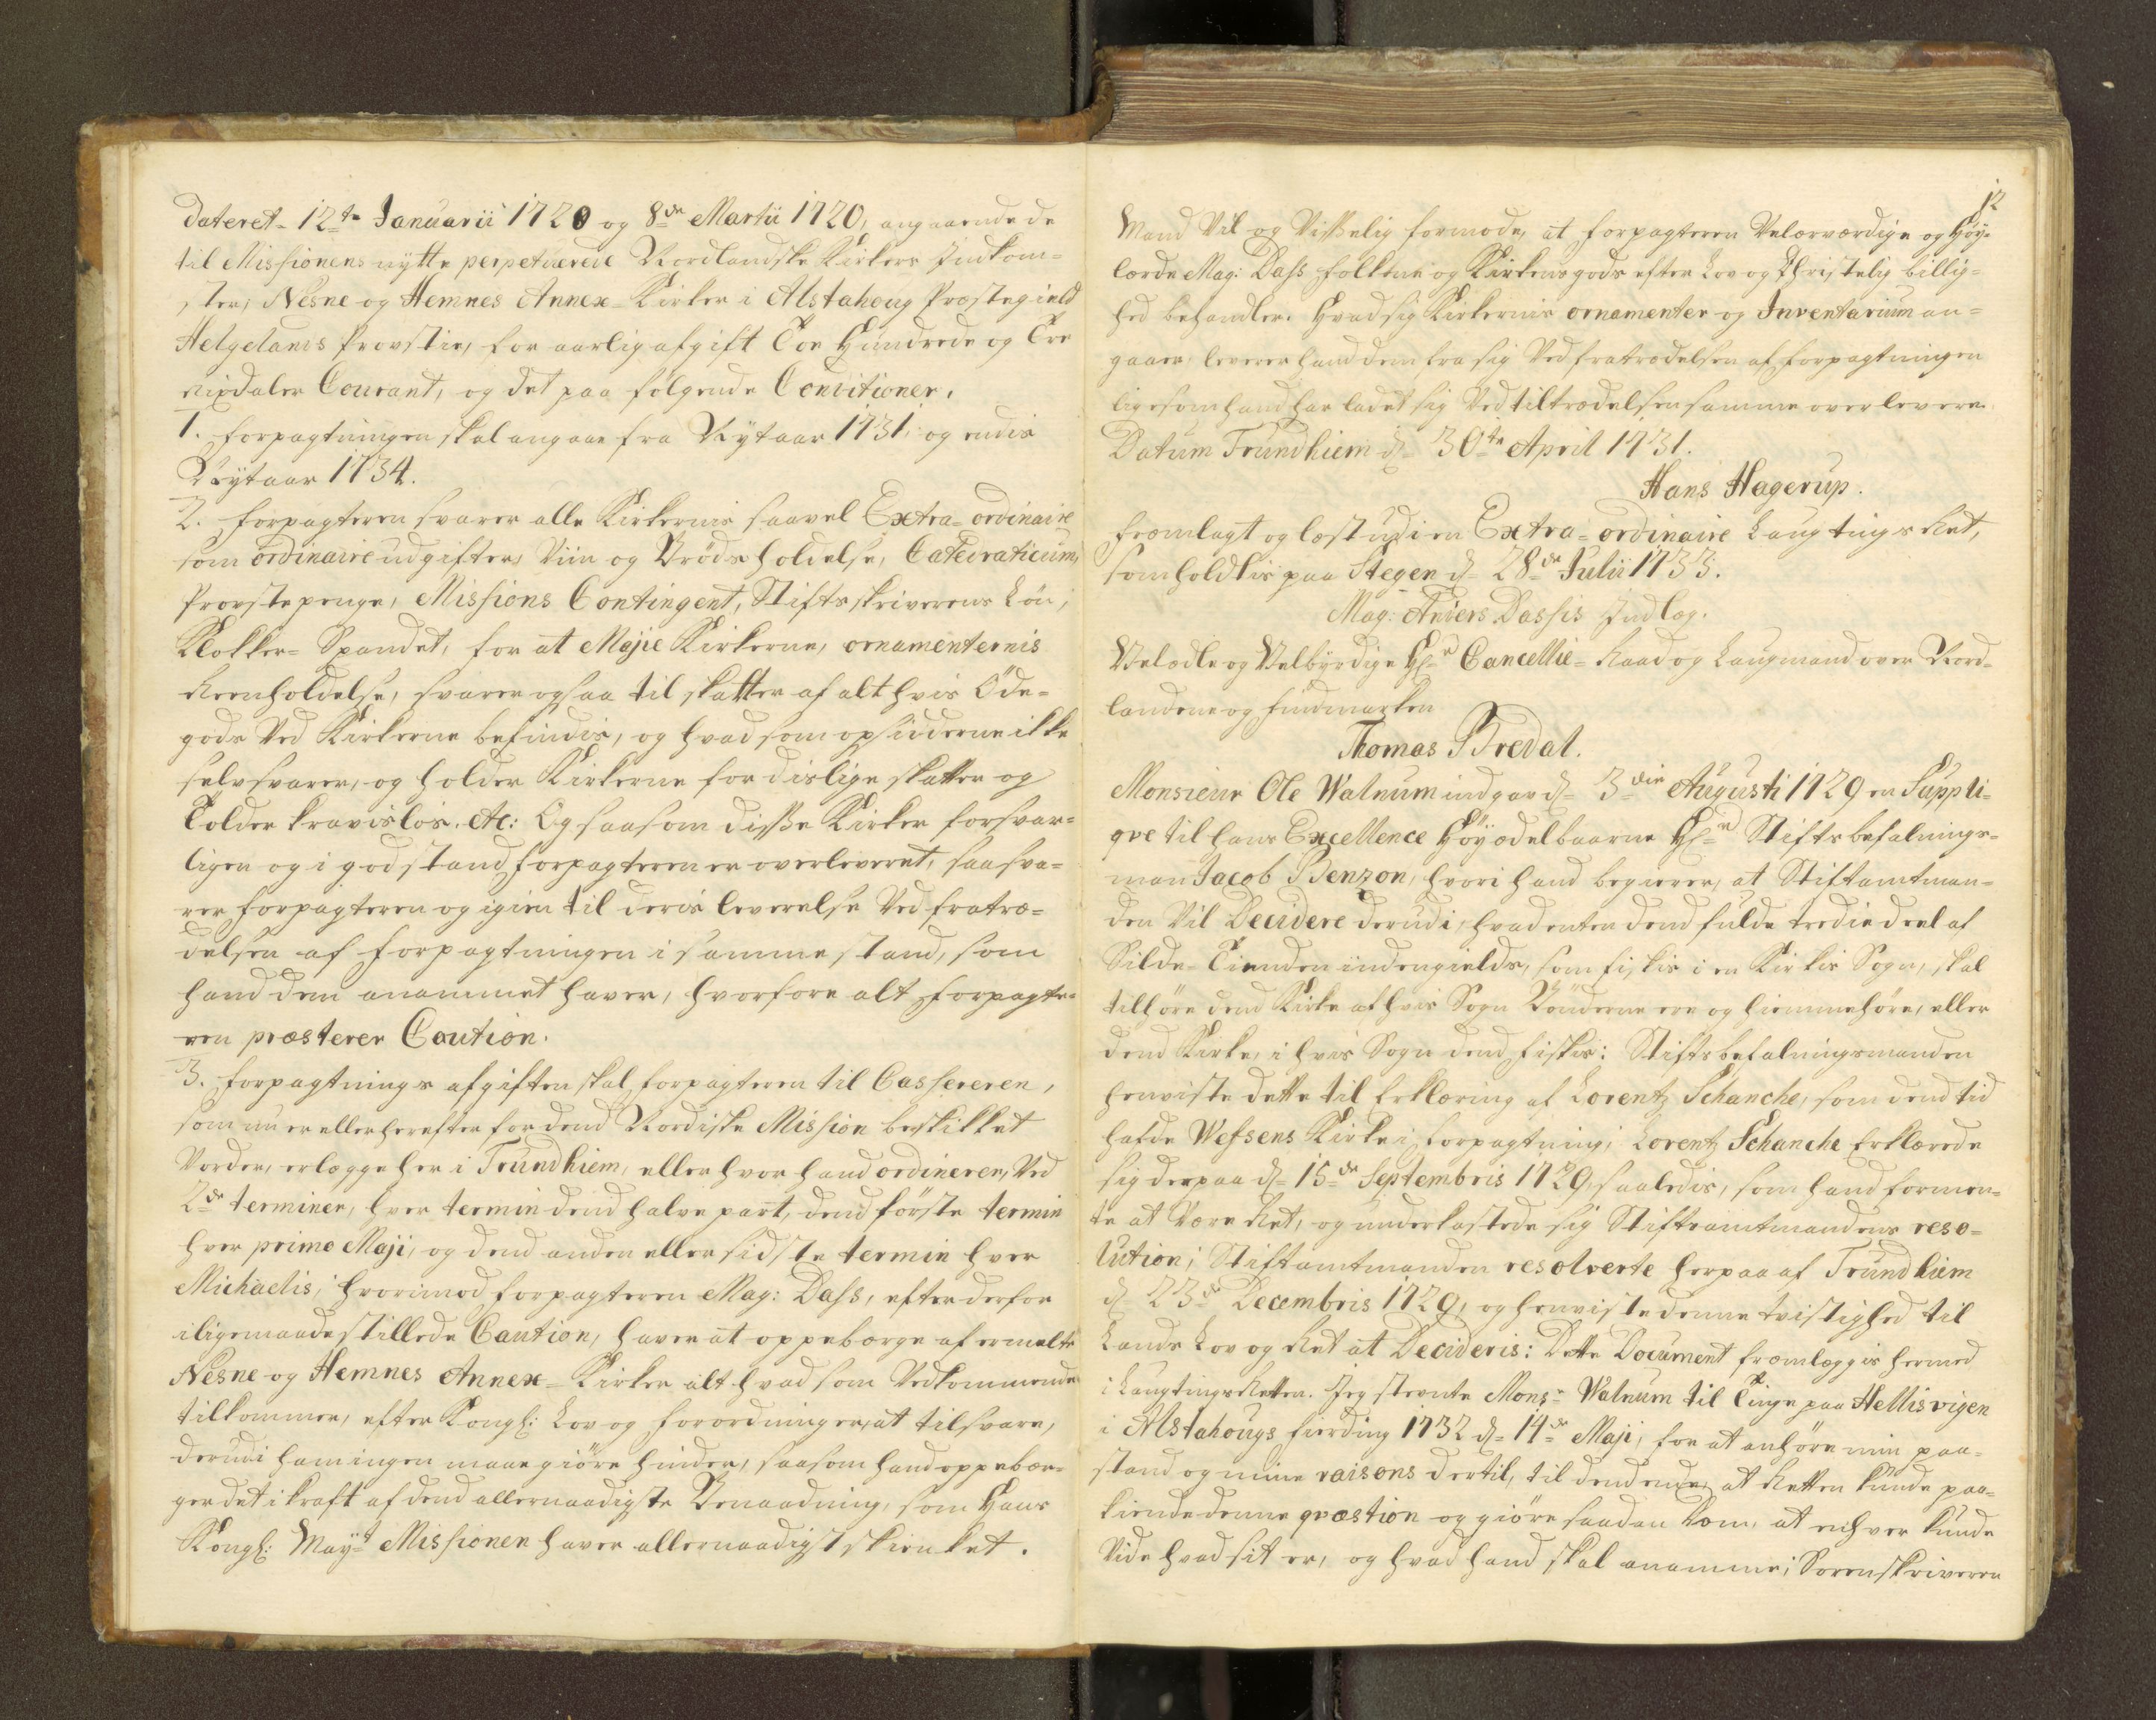 dateret 12te Januarii 1720 og 8de Martii 1720, angaaende de
til Missionens nytte perpetuerede Nordlandske Kirkers Indkom-
ster, Nesne og Hemnes Annex-Kirker i Alstahoug Præstegield
Helgelands Provstie, for aarlig afgift Toe Hundrede og Tre
Rixdaler Courant, og det paa følgende Conditioner.
1. Forpagtningen skal angaae fra Nytaar 1731, og endis
Nytaar 1734.
2. Forpagteren svarer alle Kirkernis saavel Extra-ordinaire
som ordinaire udgifter, Viin og Brøds holdelse, Catedraticum,
Provstepenge, Missions Contingent, Stiftsskriverens Løn,
Klokker-Spandet, for at Majie Kirkerne, ornamenternis
Reenholdelse, svarer ogsaa til skatter af alt hvis Øde-
gods Ved Kirkerne befindis, og hvad som opsidderne ikke
selv svarer, og holder Kirkerne for dislige skatter og
Tolder kravisløs. etc: Og saasom disse Kirker forsvar-
ligen og i god stand forpagteren er overleveret, saa sva-
rer forpagteren og igien til deris leverelse Ved fratræ-
delsen af forpagtningen i samme stand, som
hand dem anammet haver, hvorfore alt forpagte-
ren præsterer Caution.
3. Forpagtnings afgiften skal forpagteren til Cassereren,
som nu er eller herefter for dend Nordiske Mission beskikket
Vorder, erlægge her i Trundhiem, eller hvor hand ordineren, Ved
2de terminer, hver termin dend halve part, dend første termin
hver primo Maji, og dend anden eller sidste termin hver
Michaelis, hvorimod forpagteren Mag: Dass, efter derfor
iligemaade stillede Caution, haver at oppebærge af ermelte
Nesne og Hemnes Annex-Kirker alt hvad som Vedkommende
tilkommer, efter Kongl: Lov og forordninger, at tilsvare,
derudi ham ingen maae giøre hinder, saasom hand oppebær-
ger det i kraft af dend allernaadigste Benaadning, som Hans
Kongl: Mayt Missionen haver allernaadigst skienket.
12
Mand Vil og Visselig formode, at forpagteren Velærværdige og Høy-
lærde Mag: Dass Folkene og Kirkens gods efter Lov og Christelig billig-
hed behandler. Hvad sig Kirkernis ornamenter og Inventarium an-
gaaer, leverer hand dem fra sig Ved fratrædelsen af forpagtningen
ligesom hand har ladet sig Ved tiltrædelsen samme overlevere.
Datum Trundhiem d: 30te April 1731.
Hans Hagerup.
Fremlagt og læst udi en Extra-ordinaire Laugtings Ret,
som holdtis paa Stegen d: 28de Julii 1733.
Mag: Anders Dassis Indlæg.
Velædle og Velbyrdige Hr Cancellie-Raad og Laugmand over Nord-
landene og Findmarken
Thomas Bredal.
Monsieur Ole Walnum indgav d: 3die Augusti 1729 en Suppli-
qve til hans Excellence Høyædelbaarne Hr Stiftsbefalnings-
man Jacob Benzon, hvori hand begierer, at Stiftamtman-
den Vil Decidere derudi, hvad enten dend fulde tredie deel af
Silde-Tienden indengields, som fiskis i en Kirkis Sogn, skal
tilhøre dend Kirke af hvis Sogn Bønderne ere og hiemmehøre, eller
dend Kirke, i hvis Sogn dend fiskis: Stiftsbefalningsmanden
henviste dette til Erklæring af Lorentz Schanche, som dend tid
hafde Wefsens Kirke i forpagtning; Lorentz Schanche Erklærede
sig derpaa d: 15de Septembris 1729, saaledis, som hand formen-
te at Være Ret, og underkastede sig Stiftamtmandens reso-
lution; Stiftamtmanden resolverte herpaa af Trundhiem
d: 23de Decembris 1729, og henviste denne tvistighed til
Lands Lov og Ret at Decideris: Dette Document fremlæggis hermed
i Laugtings Retten. Jeg stevnte Monsr Walnum til Tinge paa Hellisvigen
i Alstahougs Fierding 1732 d: 14de Maji, for at anhøre min paa-
stand og mine raisons dertil, til dend ende, at Retten kunde paa-
kiende denne qvæstion og giøre saadan Dom, at enhver kunde
Vide hvad sit er, og hvad hand skal anamme; Sorenskriveren